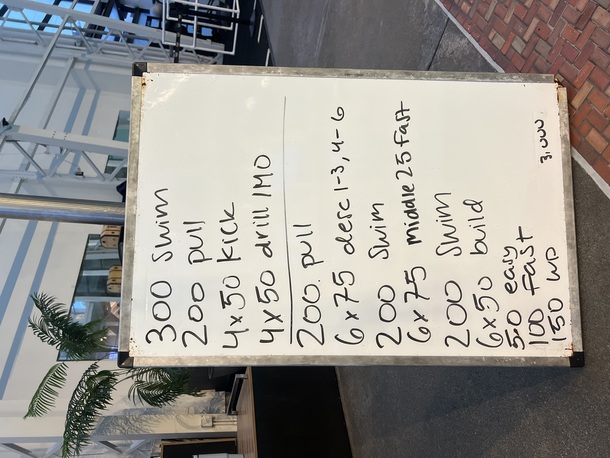 300 Swim
200 pull
4x50 kick
4x50 drill IMO
200. pull
6x75 desc 1-3, 4-6
200 Swim
6x75 middle 25 Fast
200 Swim
6x50 build
50 easy
100 Fast
150 WD
3,000